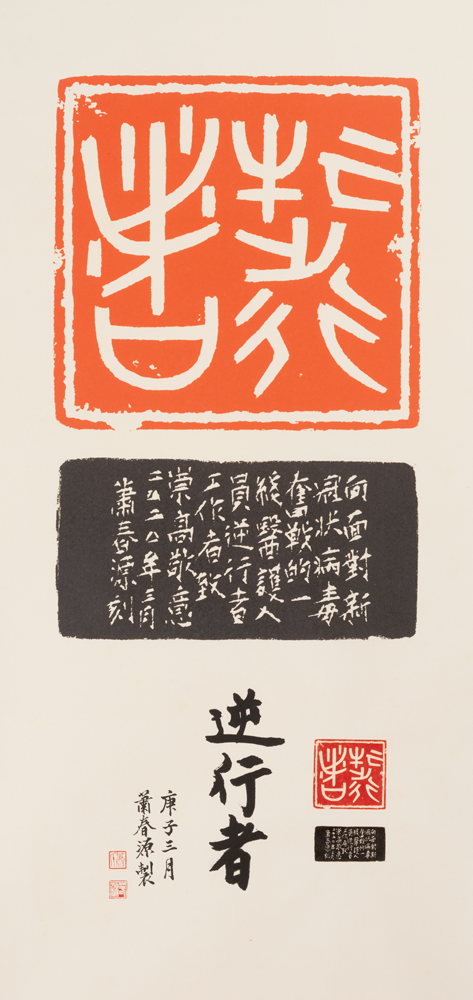 逆行
者
向面對新
冠狀病毒
奮戰的一
綫醫護人
員逆行者
工作者致
崇高敬意
二〇二〇年三月
蕭春源刻
逆行
者
逆行者
庚子三月
蕭春源製